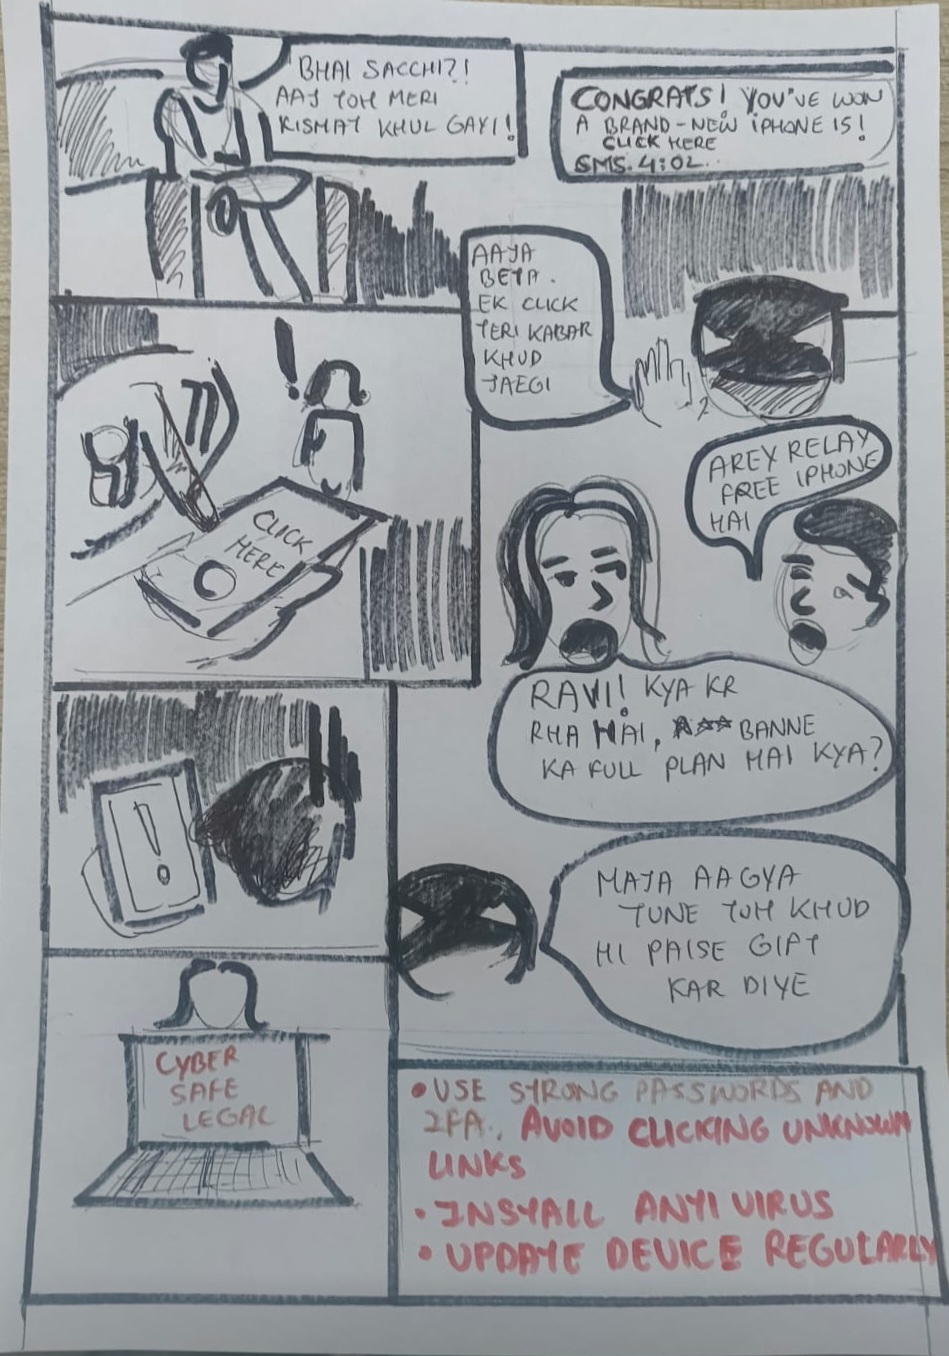 BHAI SACCHI?!
AAJ TOH MERI
KISMAT KHUL GAYI!
CONGRATS! YOU'VE WON
A BRAND-NEW iPHONE 15!
CLICK HERE
SMS. 4:02..
AAJA
BETA.
EK CLICK
TERI KABAR
KHUD
JAEGI
!
CLICK
HERE
AREY RELAY
FREE IPHONE
HAI
RAVI! KYA KR
RHA HAI, A** BANNE
KA FULL PLAN HAI KYA?
!
MAJA AAGYA
TUNE TOH KHUD
HI PAISE GIFT
KAR DIYE
CYBER
SAFE
LEGAL
• USE STRONG PASSWORDS AND
2FA., AVOID CLICKING UNKNOWN
LINKS
• INSTALL ANTIVIRUS
• UPDATE DEVICE REGULARLY